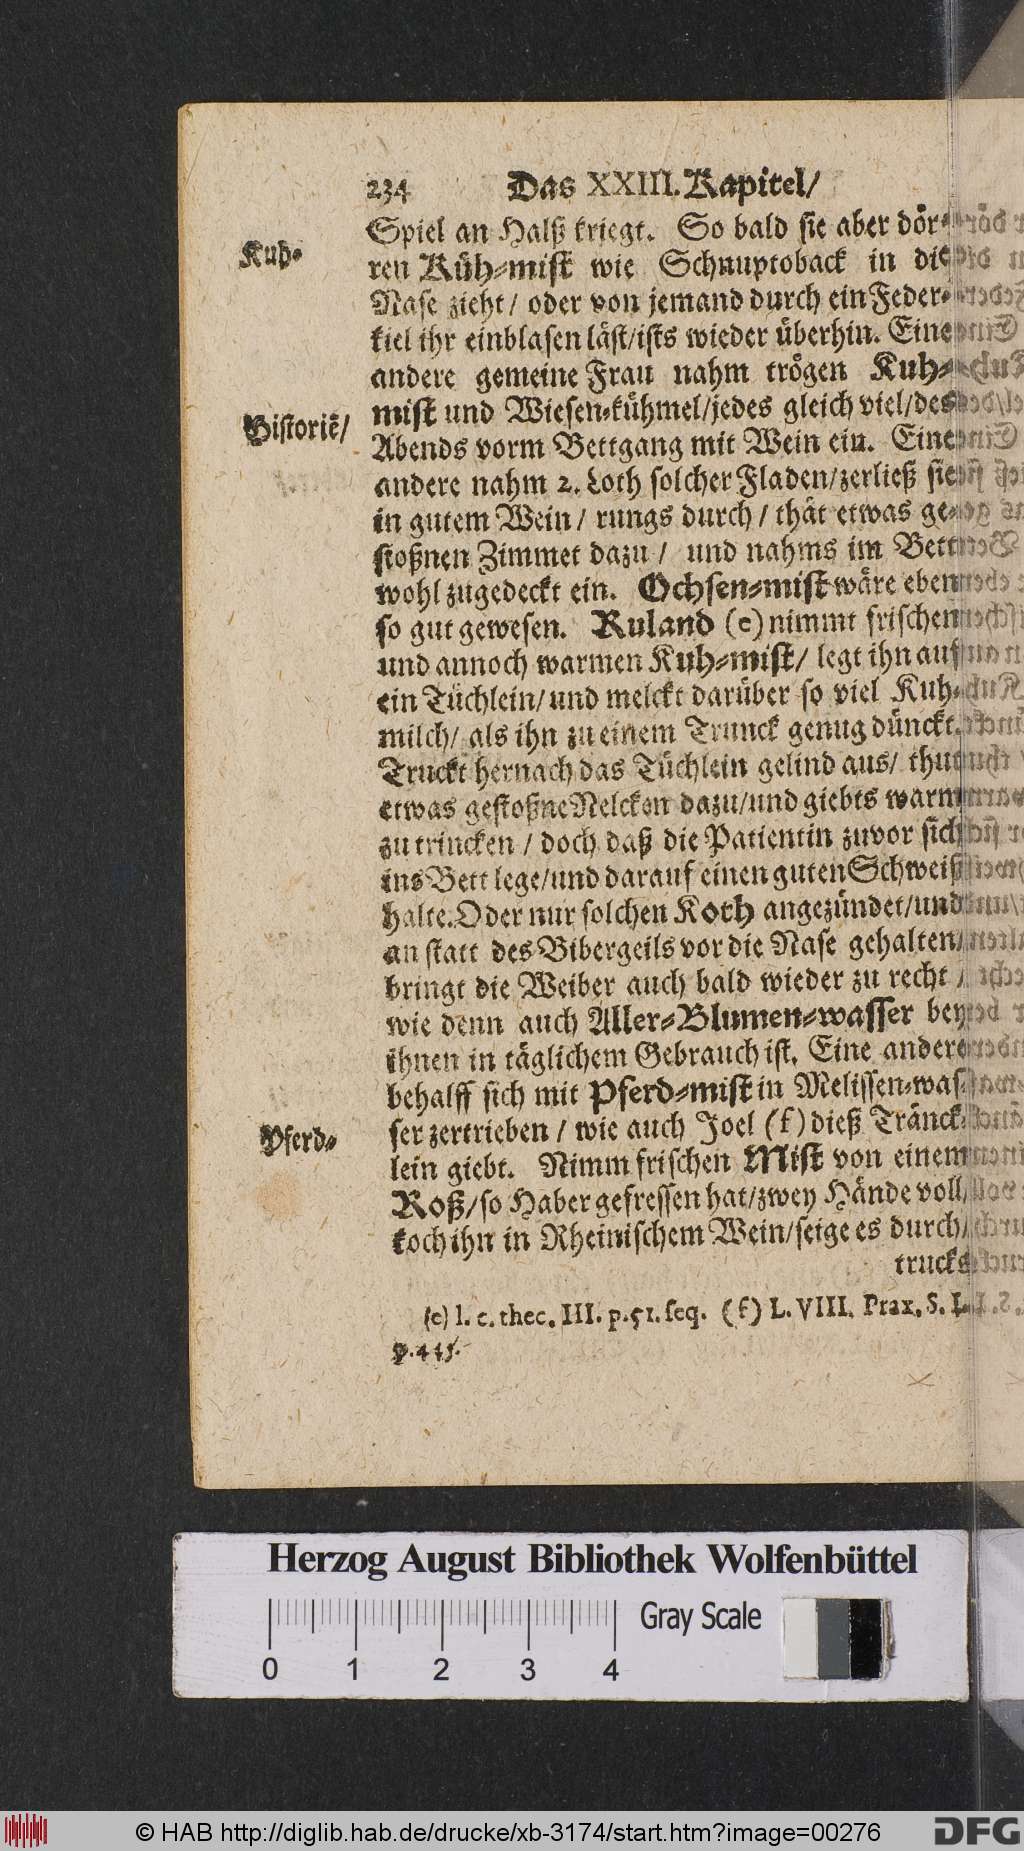 234 Das XXIII. Kapitel/
Spiel an Halß kriegt. So bald sie aber dör-
Kuh-
ren Küh-mist wie Schnuptoback in die
Nase zieht/ oder von jemand durch ein Feder-
kiel ihr einblasen läst/ists wieder überhin. Eine
andere gemeine Frau nahm trögen Kuh-
Historiē/
mist und Wiesen-kühmel/jedes gleich viel/des
Abends vorm Bettgang mit Wein ein. Eine
andere nahm 2. Loth solcher Fladen/zerließ sie
in gutem Wein/ rungs durch/ thät etwas ge-
stoßnen Zimmet dazu/ und nahms im Bett
wohl zugedeckt ein. Ochsen-mist wäre eben
so gut gewesen. Ruland (e) nimmt frischen
und annoch warmen Kuh-mist/ legt ihn auf
ein Tüchlein/ und melckt darüber so viel Kuh-
milch/ als ihn zu einem Trunck genug dünckt.
Truckt hernach das Tüchlein gelind aus/ thut
etwas gestoßne Nelcken dazu/und giebts warm
zu trincken/ doch daß die Patientin zuvor sich
ins Bett lege/und darauf einen guten Schweiß
halte. Oder nur solchen Koth angezündet/und
an statt des Bibergeils vor die Nase gehalten/
bringt die Weiber auch bald wieder zu recht/
wie denn auch Aller-Blumen-wasser bey
ihnen in täglichem Gebrauch ist. Eine andere
behalff sich mit Pferd-mist in Melissen-was-
Pferd-
ser zertrieben/ wie auch Joel (f) dieß Tränck-
lein giebt. Nimm frischen Mist von einem
Roß/so Haber gefressen hat/zwey Hände voll/
koch ihn in Rheinischem Wein/seige es durch/
trucks
(e) l. c. thec. III. p. 51. seq. (f) L. VIII. Prax. S. I.
p. 445.
Herzog August Bibliothek Wolfenbüttel
Gray Scale
0 1 2 3 4
© HAB http://diglib.hab.de/drucke/xb-3174/start.htm?image=00276
DFG